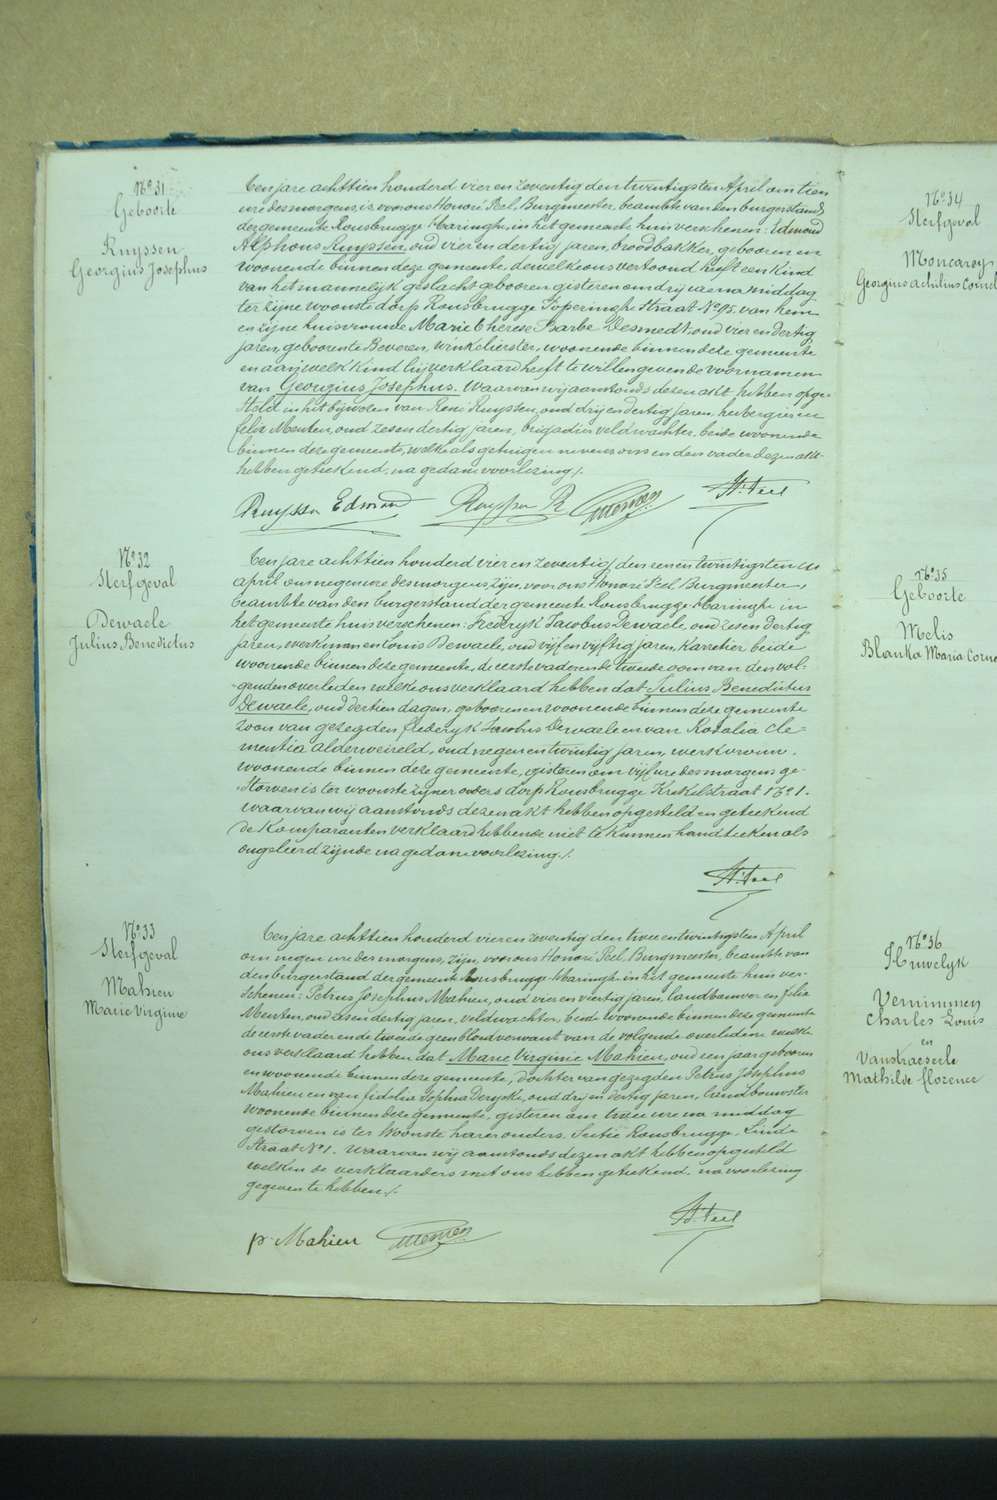 N° 31
Geboorte
Ruyssen
Georgius Josephus
Ten jare achttien honderd vier en zeventig den twintigsten April om tien
ure des morgens, is voor ons Honoré Peel, Burgmeester, beambte van den burgerstand
der gemeente Rousbrugge Haringhe, in het gemeente huis verschenen: Edmond
Alphons Ruyssen, oud vier en dertig jaren, broodbakker, geboren en
woonende binnen deze gemeente, dewelke ons vertoond heeft een kind
van het mannelyk geslacht geboren gisteren om dry ure na middag
ter zijne woonste dorp Rousbrugge Poperinghe Straat N° 95. van hem
en zijne huisvrouwe Marie Therese Barbe Desmedt, oud vier en dertig
jaren, geboren te Beveren, winkelierster, woonende binnen deze gemeente
en aan welk kind hij verklaard heeft te willen geven de voornamen
van Georgius Josephus. Waarvan wij aanstonds dezen akt hebben opge-
steld in het bijwezen van René Ruyssen, oud drij en dertig jaren, herbergier en
felix Menten, oud zes en dertig jaren, brigadier veldwachter, beide woonende
binnen deze gemeente, welke als getuigen nevens ons en den vader dezen akt
hebben geteekend, na gedane voorlezing /.
Ruyssen Edmond Ruyssen R Menten H. Peel
N° 32
Sterfgeval
Dewaele
Julius Benedictus
Ten jare achttien honderd vier en zeventig den een en twintigsten
April om negen ure des morgens zijn, voor ons Honoré Peel Burgmeester,
beambte van den burgerstand der gemeente Rousbrugge Haringhe in
het gemeente huis verschenen: Frederyk Jacobus Dewaele, oud zes en dertig
jaren, werkman en Louis Dewaele, oud vijf en vijftig jaren, Karretier beide
woonende binnen deze gemeente, de eerste vader en de tweede oom van den vol-
genden overleden welke ons verklaard hebben dat Julius Benedictus
Dewaele, oud dertien dagen, geboren en woonende binnen deze gemeente
zoon van gezegden frederyk Jacobus Dewaele en van Rosalia Cle-
mentia Alderweireld, oud negen en twintig jaren, werkvrouw,
woonende binnen deze gemeente, gisteren om vijf ure des morgens ge-
storven is ter woonste zijner ouders dorp Rousbrugge Krekelstraat N° 1.
waarvan wij aanstonds dezen akt hebben opgesteld en geteekend
de Komparanten verklaard hebbende niet te kunnen handteeken als
ongeleerd zijnde na gedane voorlezing /.
H. Peel
N° 33
Sterfgeval
Mahieu
Marie Virginie
Ten jare achttien honderd vier en zeventig den twee en twintigsten April
om negen ure des morgens, zijn, voor ons Honoré Peel Burgmeester, beambte van
den burgerstand der gemeente Rousbrugge Haringhe in het gemeente huis ver-
schenen: Petrus Josephus Mahieu, oud vier en viertig jaren, landbouwer en felix
Menten, oud zes en dertig jaren, veldwachter, beide woonende binnen deze gemeente
de eerste vader en de tweede geen bloedverwant van de volgende overledene welke
ons verklaard hebben dat Marie Virginie Mahieu, oud een jaar geboren
en woonende binnen deze gemeente, dochter van gezegden Petrus Josephus
Mahieu en van fidelia Sophia Derycke, oud drij en dertig jaren, landbouwster
woonende binnen deze gemeente, gisteren om twee ure na middag
gestorven is ter Woonste harer ouders. Sectie Rousbrugge, Linde
Straat N° 1. waarvan wij aanstonds dezen akt hebben opgesteld
welken de verklaarders met ons hebben geteekend na voorlezing
gegeven te hebben /.
p. Mahieu Menten H. Peel
N° 34
Sterfgeval
Moncarey
Georgius Achilius Cornel
N° 35
Geboorte
Melis
Blanka Maria Corne
N° 36
Huwelyk
Vernimmen
Charles Louis
en
Vanstraeseele
Mathilde florence